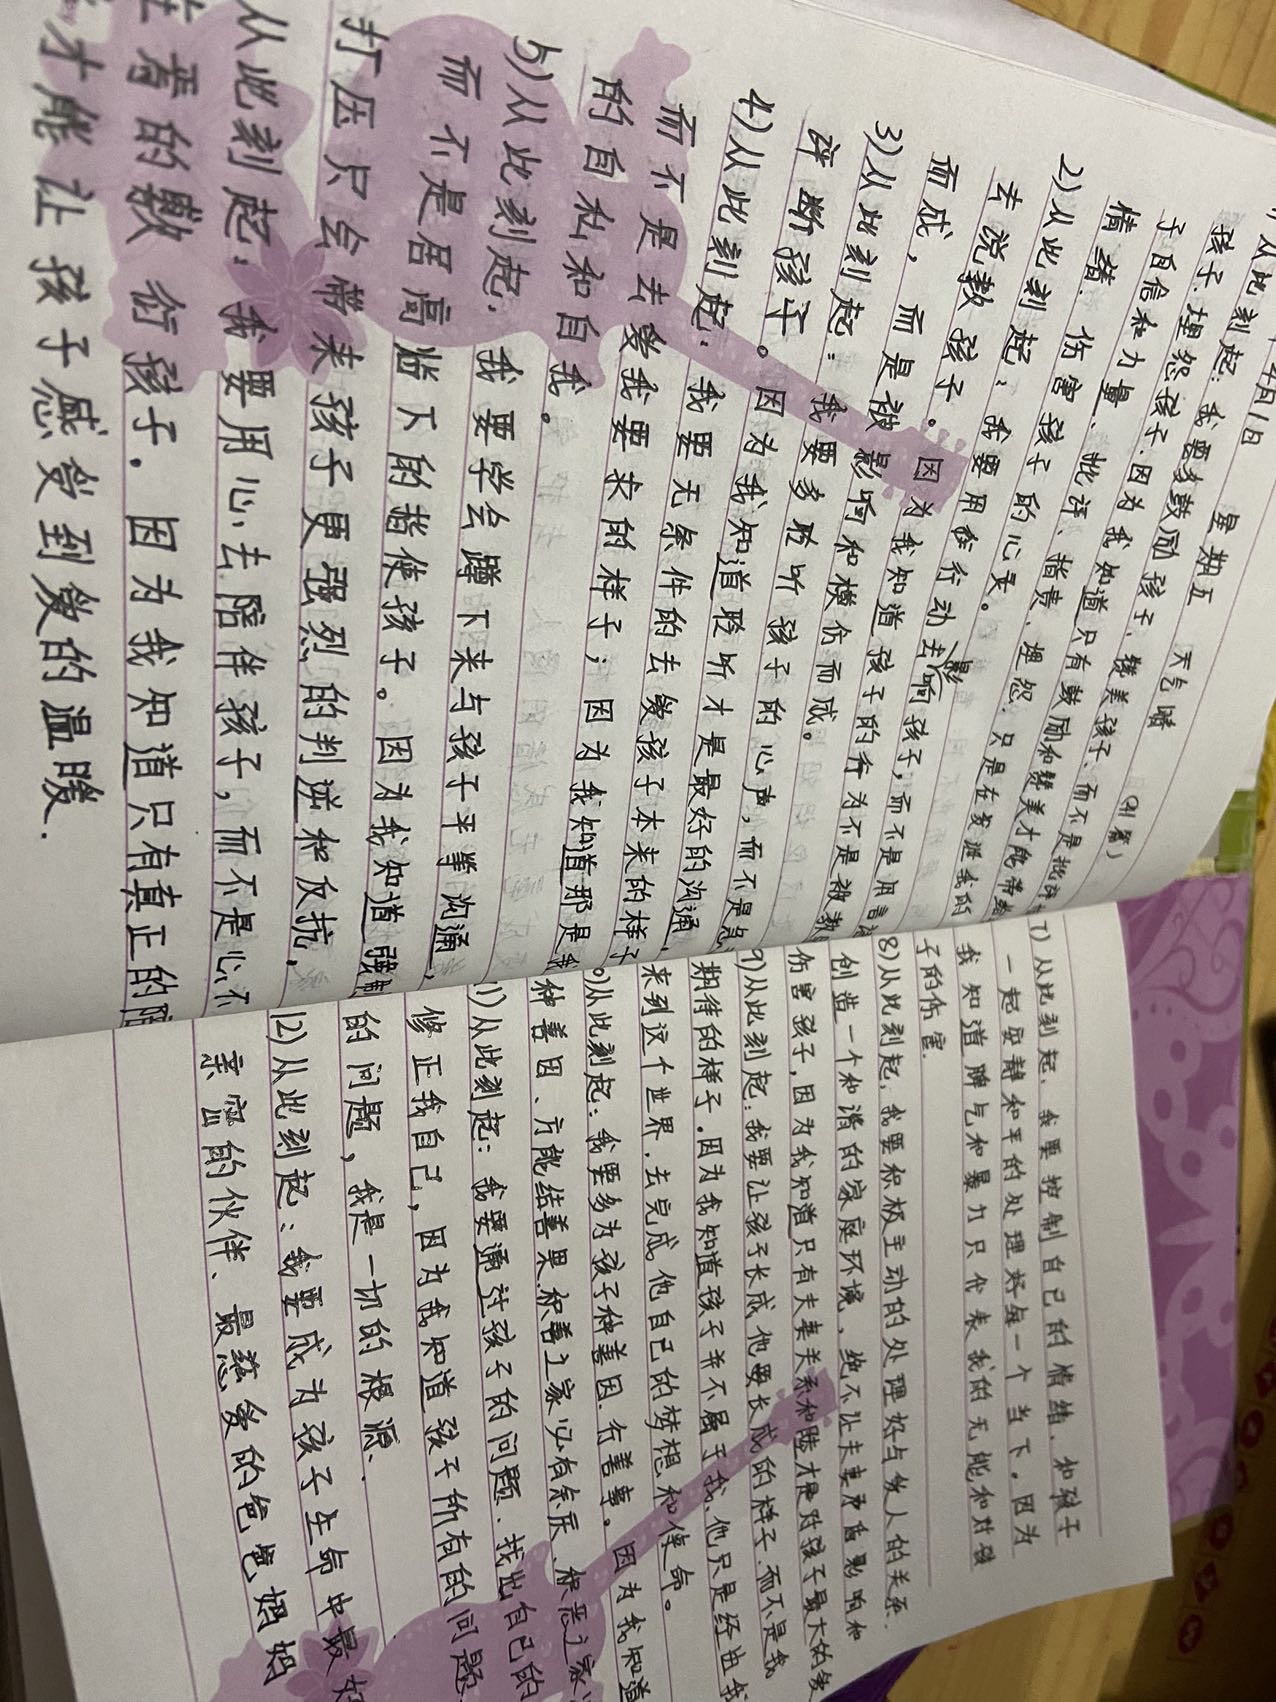 月1日 星期五 天气晴 (91篇)
从此刻起:我要多鼓励孩子、赞美孩子、而不是批评
孩子、埋怨孩子.因为我知道只有鼓励和赞美才能带给
子自信和力量、批评、指责、埋怨.只是在发泄我的
情绪.伤害孩子的心灵。
2)从此刻起:我要用行动去影响孩子,而不是用言语
去说教孩子。因为我知道孩子的行为不是被教
而成,而是被影响和模仿而成。
3)从此刻起:我要多聆听孩子的心声,而不是急
评断孩子。因为我知道聆听才是最好的沟通,
4)从此刻起:我要无条件的去爱孩子本来的样子
而不是去爱我要求的样子;因为我知道那是我
的自私和自我。
5)从此刻起:我要学会蹲下来与孩子平等沟通,
而不是居高临下的指使孩子。因为我知道强制
打压只会带来孩子更强烈的判逆和反抗,
从此刻起:我要用心去陪伴孩子,而不是心不
在焉的敷衍孩子.因为我知道只有真正的陪
才能让孩子感受到爱的温暖.
7)从此刻起.我要控制自己的情绪、和孩子
一起安静和平的处理好每一个当下。因为
我知道脾气和暴力只代表我的无能和对孩
子的伤害.
8)从此刻起,我要积极主动的处理好与爱人的关系.
创造一个和谐的家庭环境,绝不让夫妻矛盾影响和
伤害孩子,因为我知道只有夫妻关系和睦才是对孩子最大的爱
9)从此刻起:我要让孩子长成他要长成的样子.而不是我
期待的样子.因为我知道孩子并不属于我.他只是经由我
来到这个世界.去完成他自己的梦想和使命。
0)从此刻起:我要多为孩子种善因.行善事。因为我知道
种善因、方能结善果积善之家必有余庆、积恶之家
1)从此刻起:我要通过孩子的问题.找出自己的
修正我自己,因为我知道孩子所有的问题
的问题,我是一切的根源、
12)从此刻起:我要成为孩子生命中最好
亲密的伙伴、最慈爱的爸爸妈妈